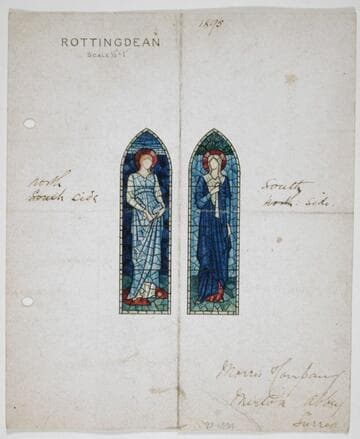 1895
ROTTINGDEAN
SCALE ½"=1'
North
South side
South
North: side.
Morris Company
Merton Abbey
Surrey